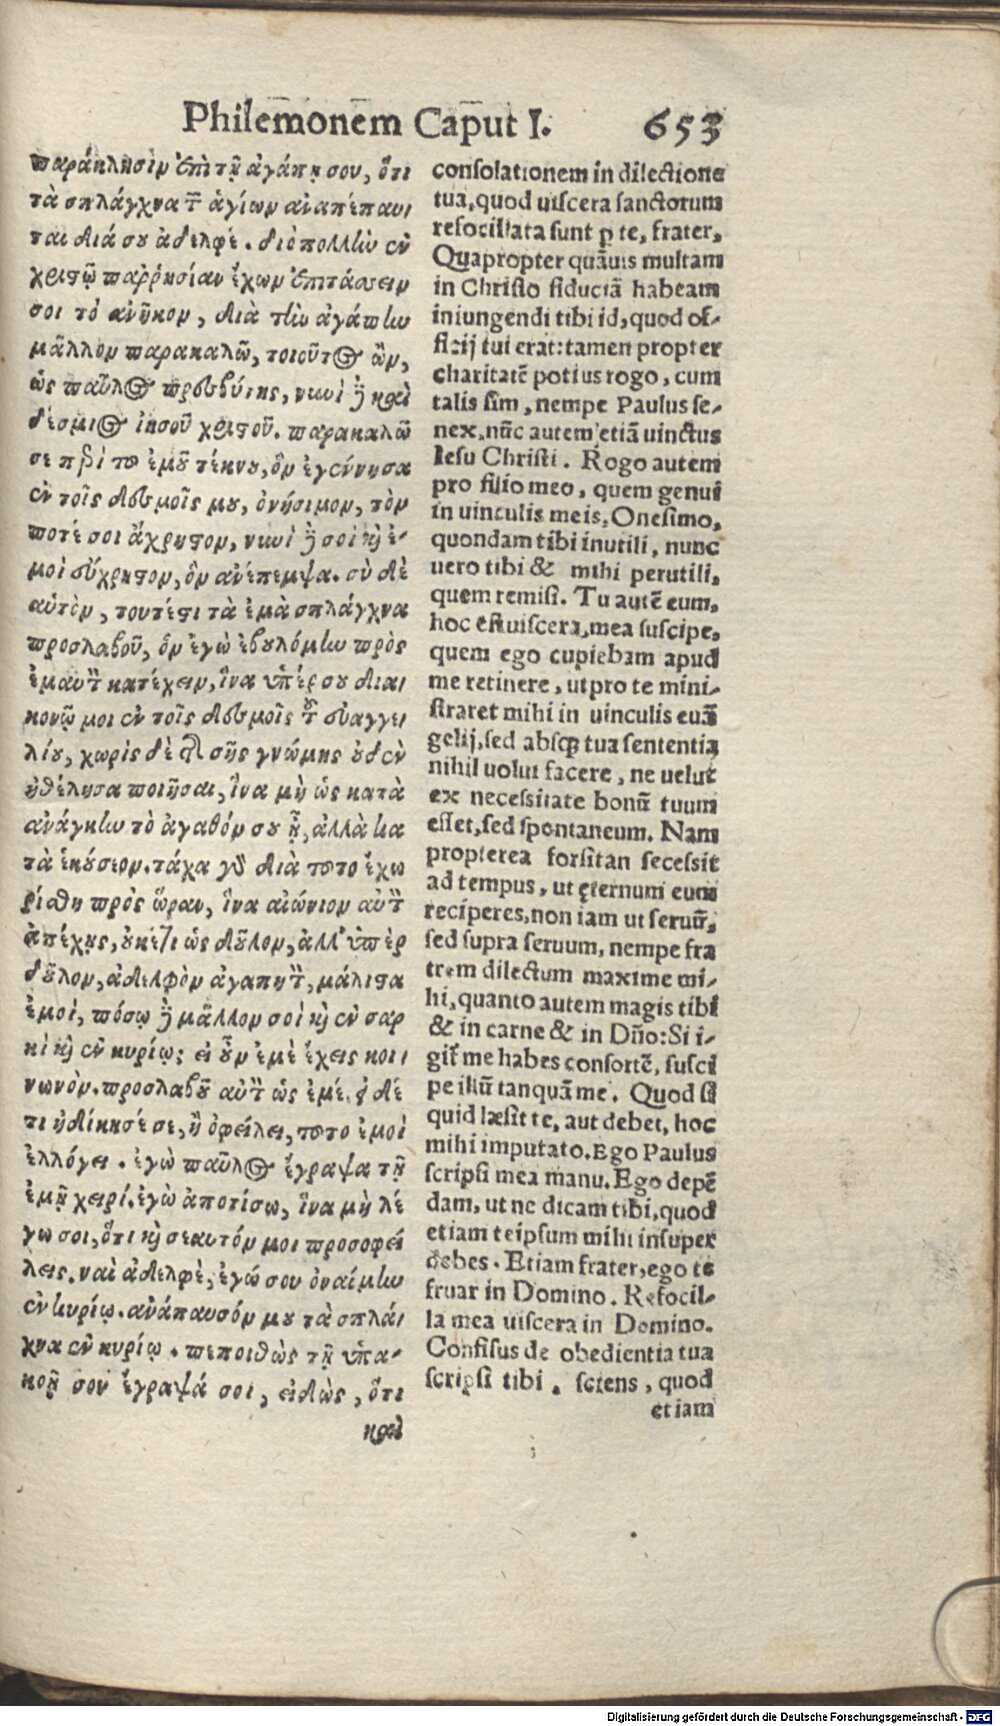 Philemonem Caput I. 653
παράκλησιν ἐπὶ τῇ ἀγάπῃ σου, ὅτι
τὰ σπλάγχνα τ῀ ἁγίων ἀναπέπαυ/
ται διά σου ἀδελφέ. διὸ πολλὴν ἐν
χριστῷ παῤῥησίαν ἔχων ἐπιτάσσειν
σοι τὸ ἀνῆκον, διὰ τὴν ἀγάπην
μᾶλλον παρακαλῶ, τοιοῦτος ὢν,
ὡς παῦλος πρεσβύτης, νυνὶ ἢ καὶ
δέσμιος ἰησοῦ χριστοῦ. παρακαλῶ
σε πρὶ το ἐμοῦ τέκνου, ὃν ἐγέννησα
ἐν τοῖς δεσμοῖς μου, ὀνήσιμον, τὸν
ποτέ σοι ἄχρηστον, νυνὶ ἢ σοὶ κὶ ἐ-
μοὶ εὔχρηστον, ὃν ἀνέπεμψα. σὺ δὲ
αὐτὸν, τουτέστι τὰ ἐμὰ σπλάγχνα
προσλαβοῦ, ὃν ἐγὼ ἐβουλόμην πρὸς
ἐμαυτ῀ κατέχειν, ἵνα ὑπέρ σου δια/
κονῇ μοι ἐν τοῖς δεσμοῖς τ῀ εὐαγγε/
λίου, χωρὶς δὲ τῆς σῆς γνώμης οὐδὲν
ἠθέλησα ποιῆσαι, ἵνα μὴ ὡς κατὰ
ἀνάγκην τὸ ἀγαθόν σου ᾖ, ἀλλὰ κα
τὰ ἑκούσιον. τάχα γὰρ διὰ τοῦτο ἐχω
ρίσθη πρὸς ὥραν, ἵνα αἰώνιον αὐτ῀
ἀπέχῃς, οὐκέτι ὡς δοῦλον, ἀλλ' ὑπὲρ
δοῦλον, ἀδελφὸν ἀγαπητ῀, μάλιστα
ἐμοί, πόσῳ ἢ μᾶλλον σοὶ κὶ ἐν σαρ
κὶ κὶ ἐν κυρίῳ; εἰ οὖν ἐμὲ ἔχεις κοι/
νωνὸν. προσλαβοῦ αὐτ῀ ὡς ἐμέ. εἰ δέ
τι ἠδίκησέ σε, ἢ ὀφείλει, τοῦτο ἐμοὶ
ἐλλόγει. ἐγὼ παῦλος ἔγραψα τῇ
ἐμῇ χειρί. ἐγὼ ἀποτίσω, ἵνα μὴ λέ
γω σοι, ὅτι κὶ σεαυτόν μοι προσοφεί
λεις. ναὶ ἀδελφὲ, ἐγώ σου ὀναίμην
ἐν κυρίῳ. ἀνάπαυσόν μου τὰ σπλά/
χνα ἐν κυρίῳ. πεποιθὼς τῇ ὑπα-
κοῇ σου ἔγραψά σοι, εἰδὼς, ὅτι
καὶ
consolationem in dilectione
tua, quod uiscera sanctorum
refocillata sunt ꝑ te, frater,
Quapropter quāuis multam
in Christo fiduciā habeam
iniungendi tibi id, quod of-
ficij tui erat: tamen propter
charitatē potius rogo, cum
talis sim, nempe Paulus se-
nex, nūc autem etiā uinctus
Iesu Christi. Rogo autem
pro filio meo, quem genui
in uinculis meis, Onesimo,
quondam tibi inutili, nunc
uero tibi & mihi perutili,
quem remisi. Tu autē eum,
hoc est uiscera mea suscipe,
quem ego cupiebam apud
me retinere, ut pro te mini-
straret mihi in uinculis euā
gelij, sed absq; tua sententia
nihil uolui facere, ne uelut
ex necessitate bonū tuum
esset, sed spontaneum. Nam
propterea forsitan secessit
ad tempus, ut ęternum eum
reciperes, non iam ut seruū,
sed supra seruum, nempe fra
trem dilectum maxime mi-
hi, quanto autem magis tibi
& in carne & in Dño: Si i-
git̄ me habes consortē, susci
pe illū tanquā me. Quod si
quid læsit te, aut debet, hoc
mihi imputato. Ego Paulus
scripsi mea manu. Ego depē
dam, ut ne dicam tibi, quod
etiam teipsum mihi insuper
debes. Etiam frater, ego te
fruar in Domino. Refocil-
la mea uiscera in Domino.
Confisus de obedientia tua
scripsi tibi, sciens, quod
etiam
Digitalisierung gefördert durch die Deutsche Forschungsgemeinschaft - DFG